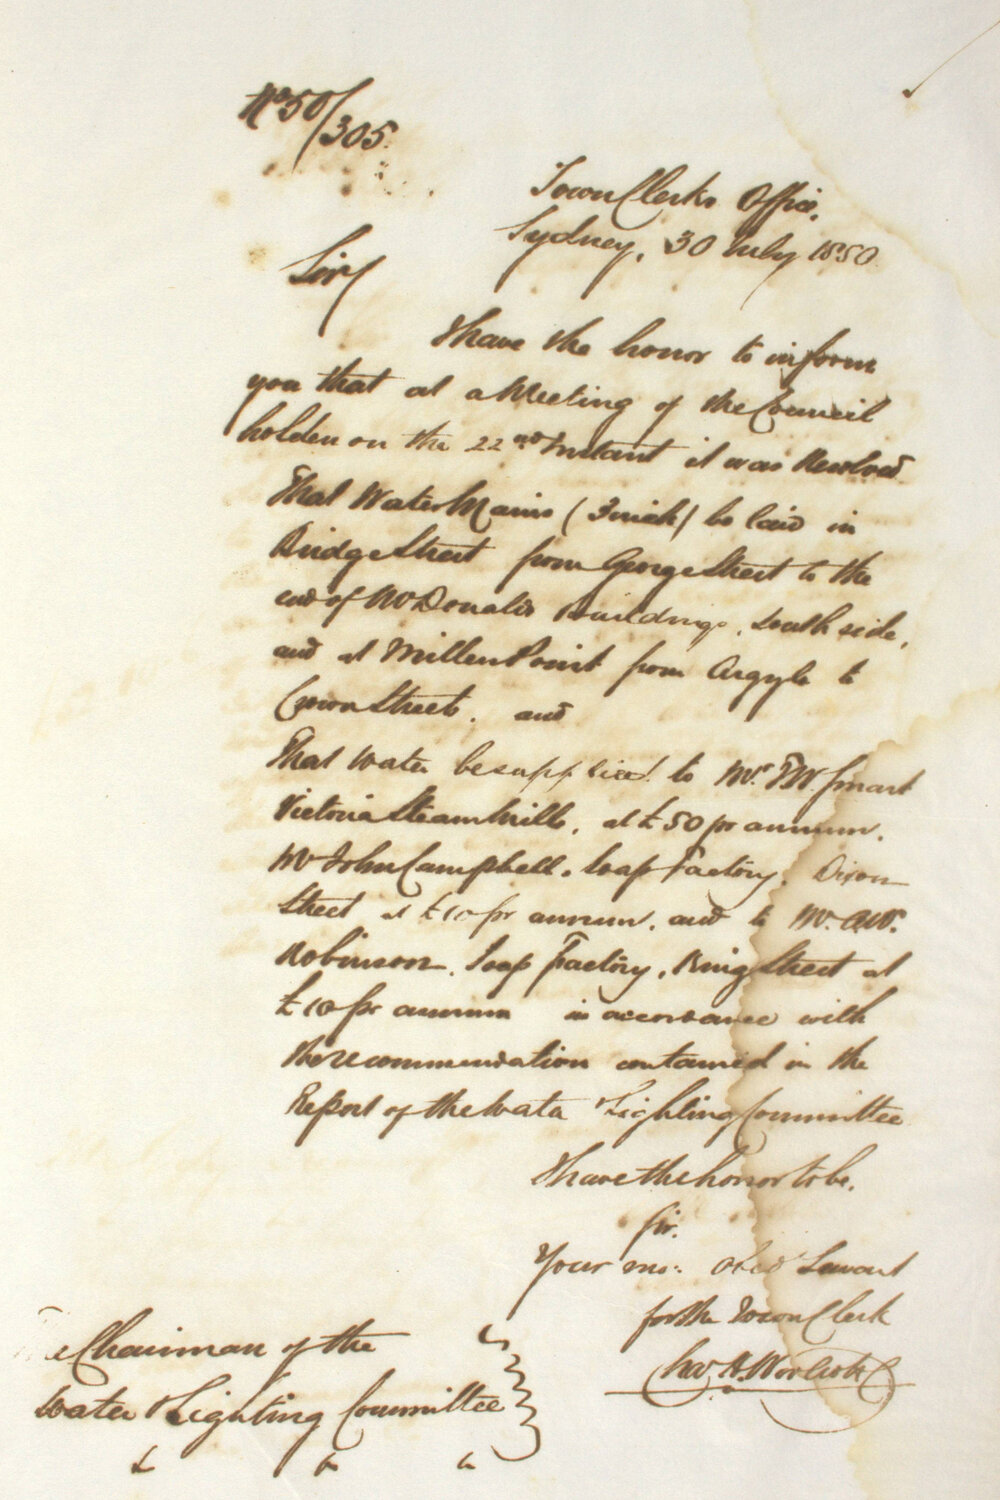 No 50/305.
Town Clerks Office,
Sydney, 30 July 1850.
Sir,
I have the honor to inform
you that at a Meeting of the Council
holden on the 22nd Instant it was Resolved
That Water Mains (3 inch) be laid in
Bridge Street from George Street to the
end of McDonalds Buildings, South side,
and at Millers Point from Argyle to
Crown Streets. and
That Water be supplied to Mr. T.W. Smart
Victoria Steam Mills, at £50 pr annum.
Mr John Campbell. Soap Factory. Dixon
Street at £10 pr annum, and to Mr.
Robinson. Soap Factory, King Street at
£10 pr annum in accordance with
the recommendation contained in the
Report of the Water & Lighting Committee
I have the honor to be,
Sir.
Your mo: Obed Servant
for the Town Clerk
Chas H. Woolcott
The Chairman of the
Water & Lighting Committee